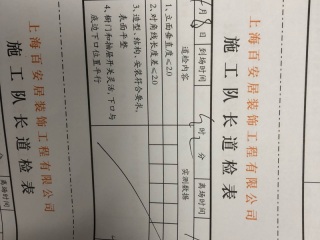 上海百安居装饰工程有限公司
施工队长道检表
8日 到场时间 时 分 离场时间
道检内容 实测数据
1、立面垂直度≤2.0
2、对角线长度差≤2.0
3、造型、结构、安装符合要求,
表面平整
4、橱门和抽屉开关灵活,下口与
底边下口位置平行
上海百安居装饰工程有限公司
施工队长道检表
离场时间